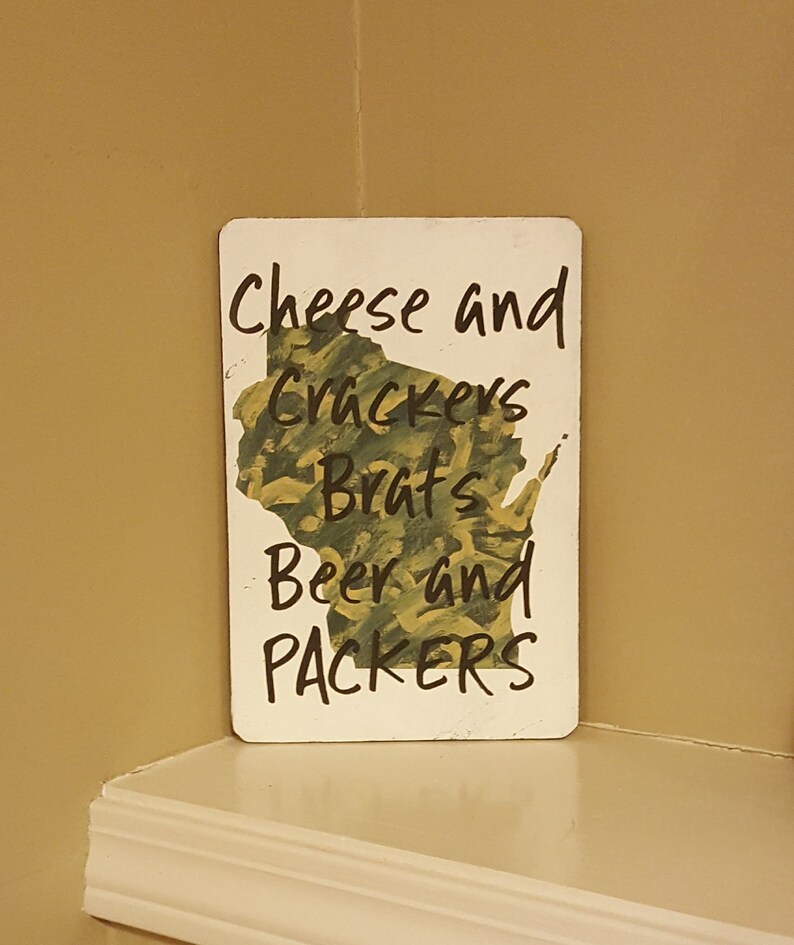 Cheese and
Crackers
Brats
Beer and
PACKERS